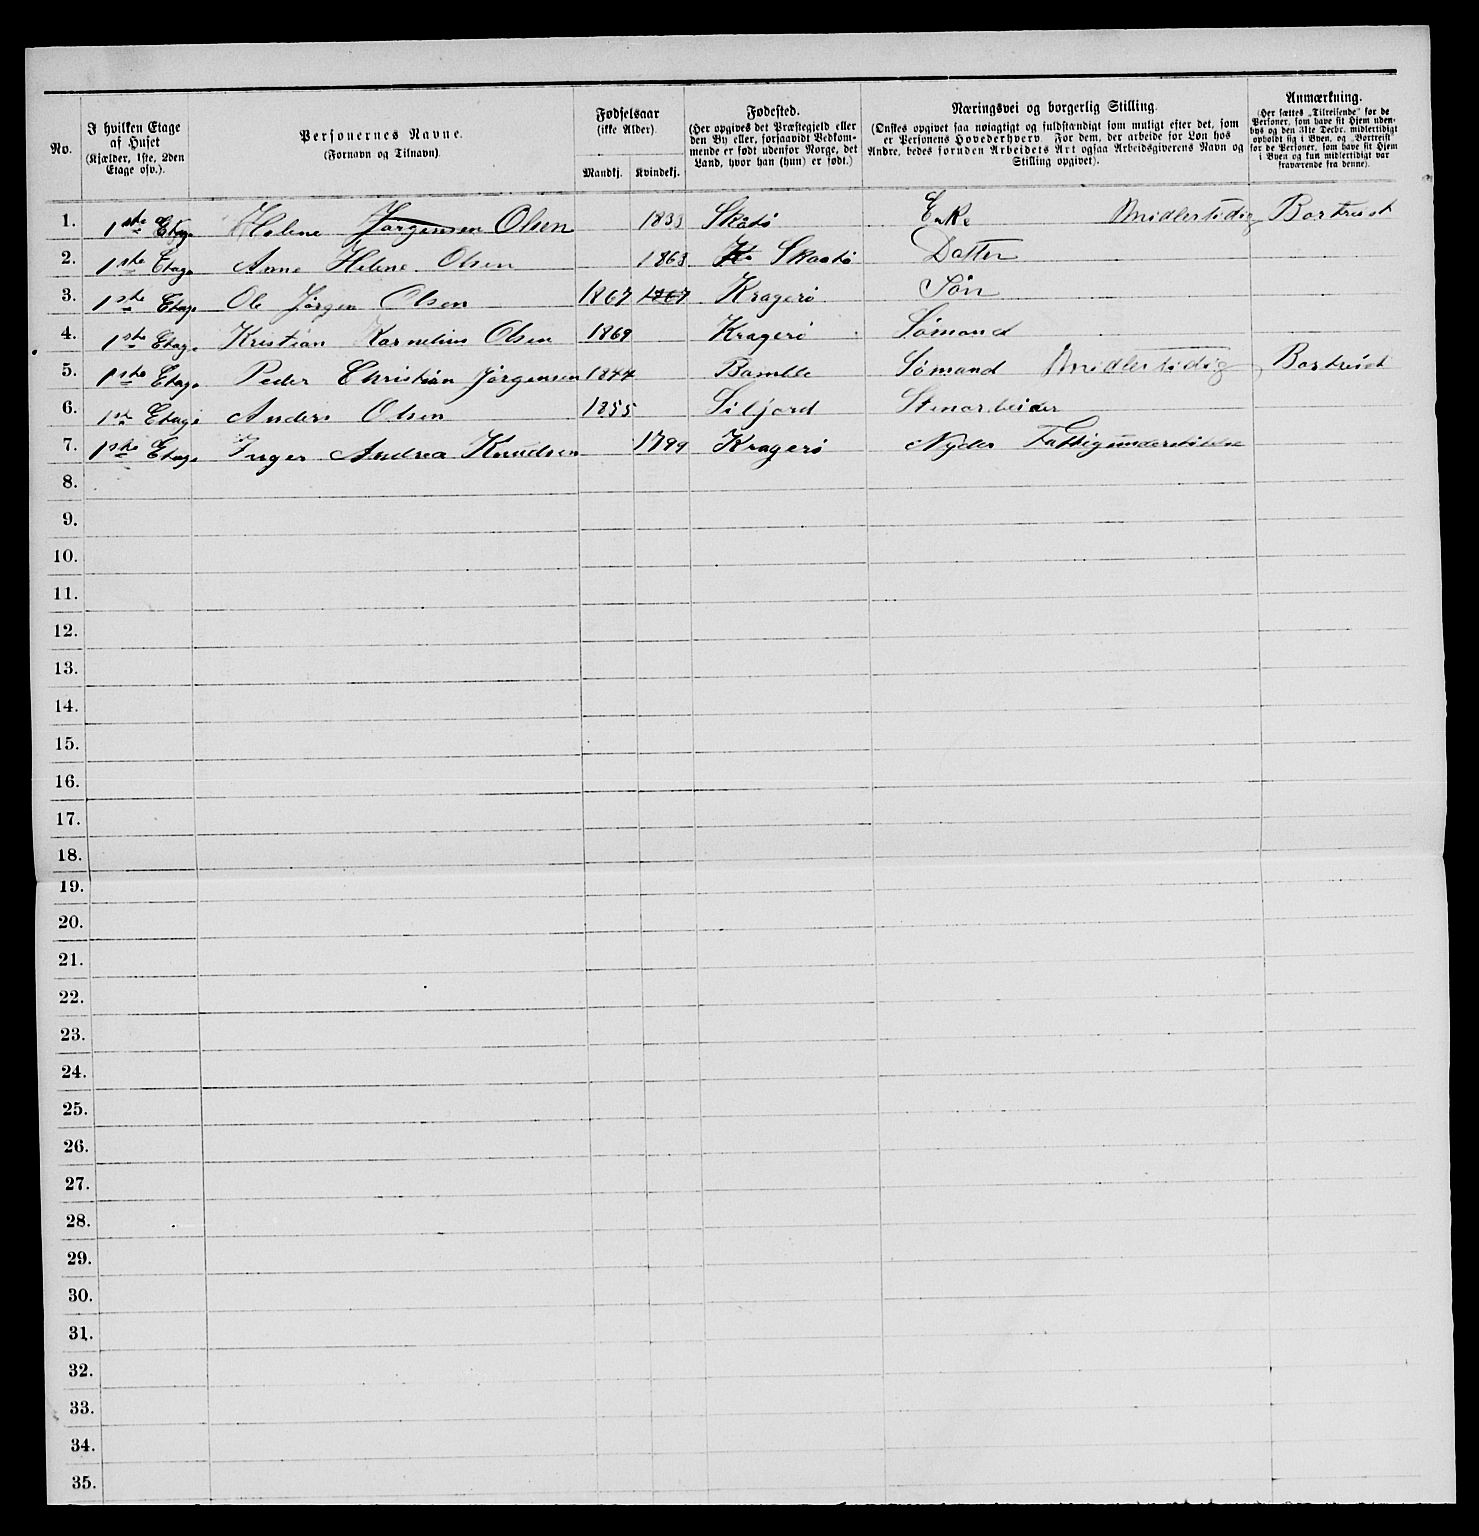 No.
I hvilken Etage
af Huset
(Kjælder, 1ste, 2den
Etage osv.).
Personernes Navne.
(Fornavn og Tilnavn).
Fødselsaar
(ikke Alder).
Mandkj. Kvindekj.
Fødested.
(Her opgives det Præstegjeld eller
den By eller, forsaavidt Vedkom-
mende er født udenfor Norge, det
Land, hvor han (hun) er født.)
Næringsvei og borgerlig Stilling.
(Ønskes opgivet saa nøiagtigt og fuldstændigt som muligt efter det, som
er Personens Hovederhverv. For dem, der arbeide for Løn hos
Andre, bedes foruden Arbeidets Art ogsaa Arbeidsgiverens Navn og
Stilling opgivet).
Anmærkning.
(Her sættes „Tilreisende“ for de
Personer, som have sit Hjem uden-
bys og den 31te Decbr. midlertidigt
opholdt sig i Byen, og „Bortreist“
for de Personer, som have sit Hjem
i Byen og kun midlertidigt var
fraværende fra denne).
1. 1ste Etage Helene Jørgensen Olsen 1833 Skatø Enke Midlertidig Bortreist
2. 1ste Etage Anne Helene Olsen 1863 Kr Skaatø Datter
3. 1ste Etage Ole Jørgen Olsen 1867 1867 Kragerø Søn
4. 1ste Etage Kristian Kornelius Olsen 1869 Kragerø Sømand
5. 1ste Etage Peder Christian Jørgensen 1844 Bamble Sømand Midlertidig Bortreist
6. 1ste Etage Anders Olsen 1855 Siljord Stenarbeider
7. 1ste Etage Inger Andrea Knudsen 1799 Kragerø Nyder Fattigunderstøttelse
8.
9.
10.
11.
12.
13.
14.
15.
16.
17.
18.
19.
20.
21.
22.
23.
24.
25.
26.
27.
28.
29.
30.
31.
32.
33.
34.
35.